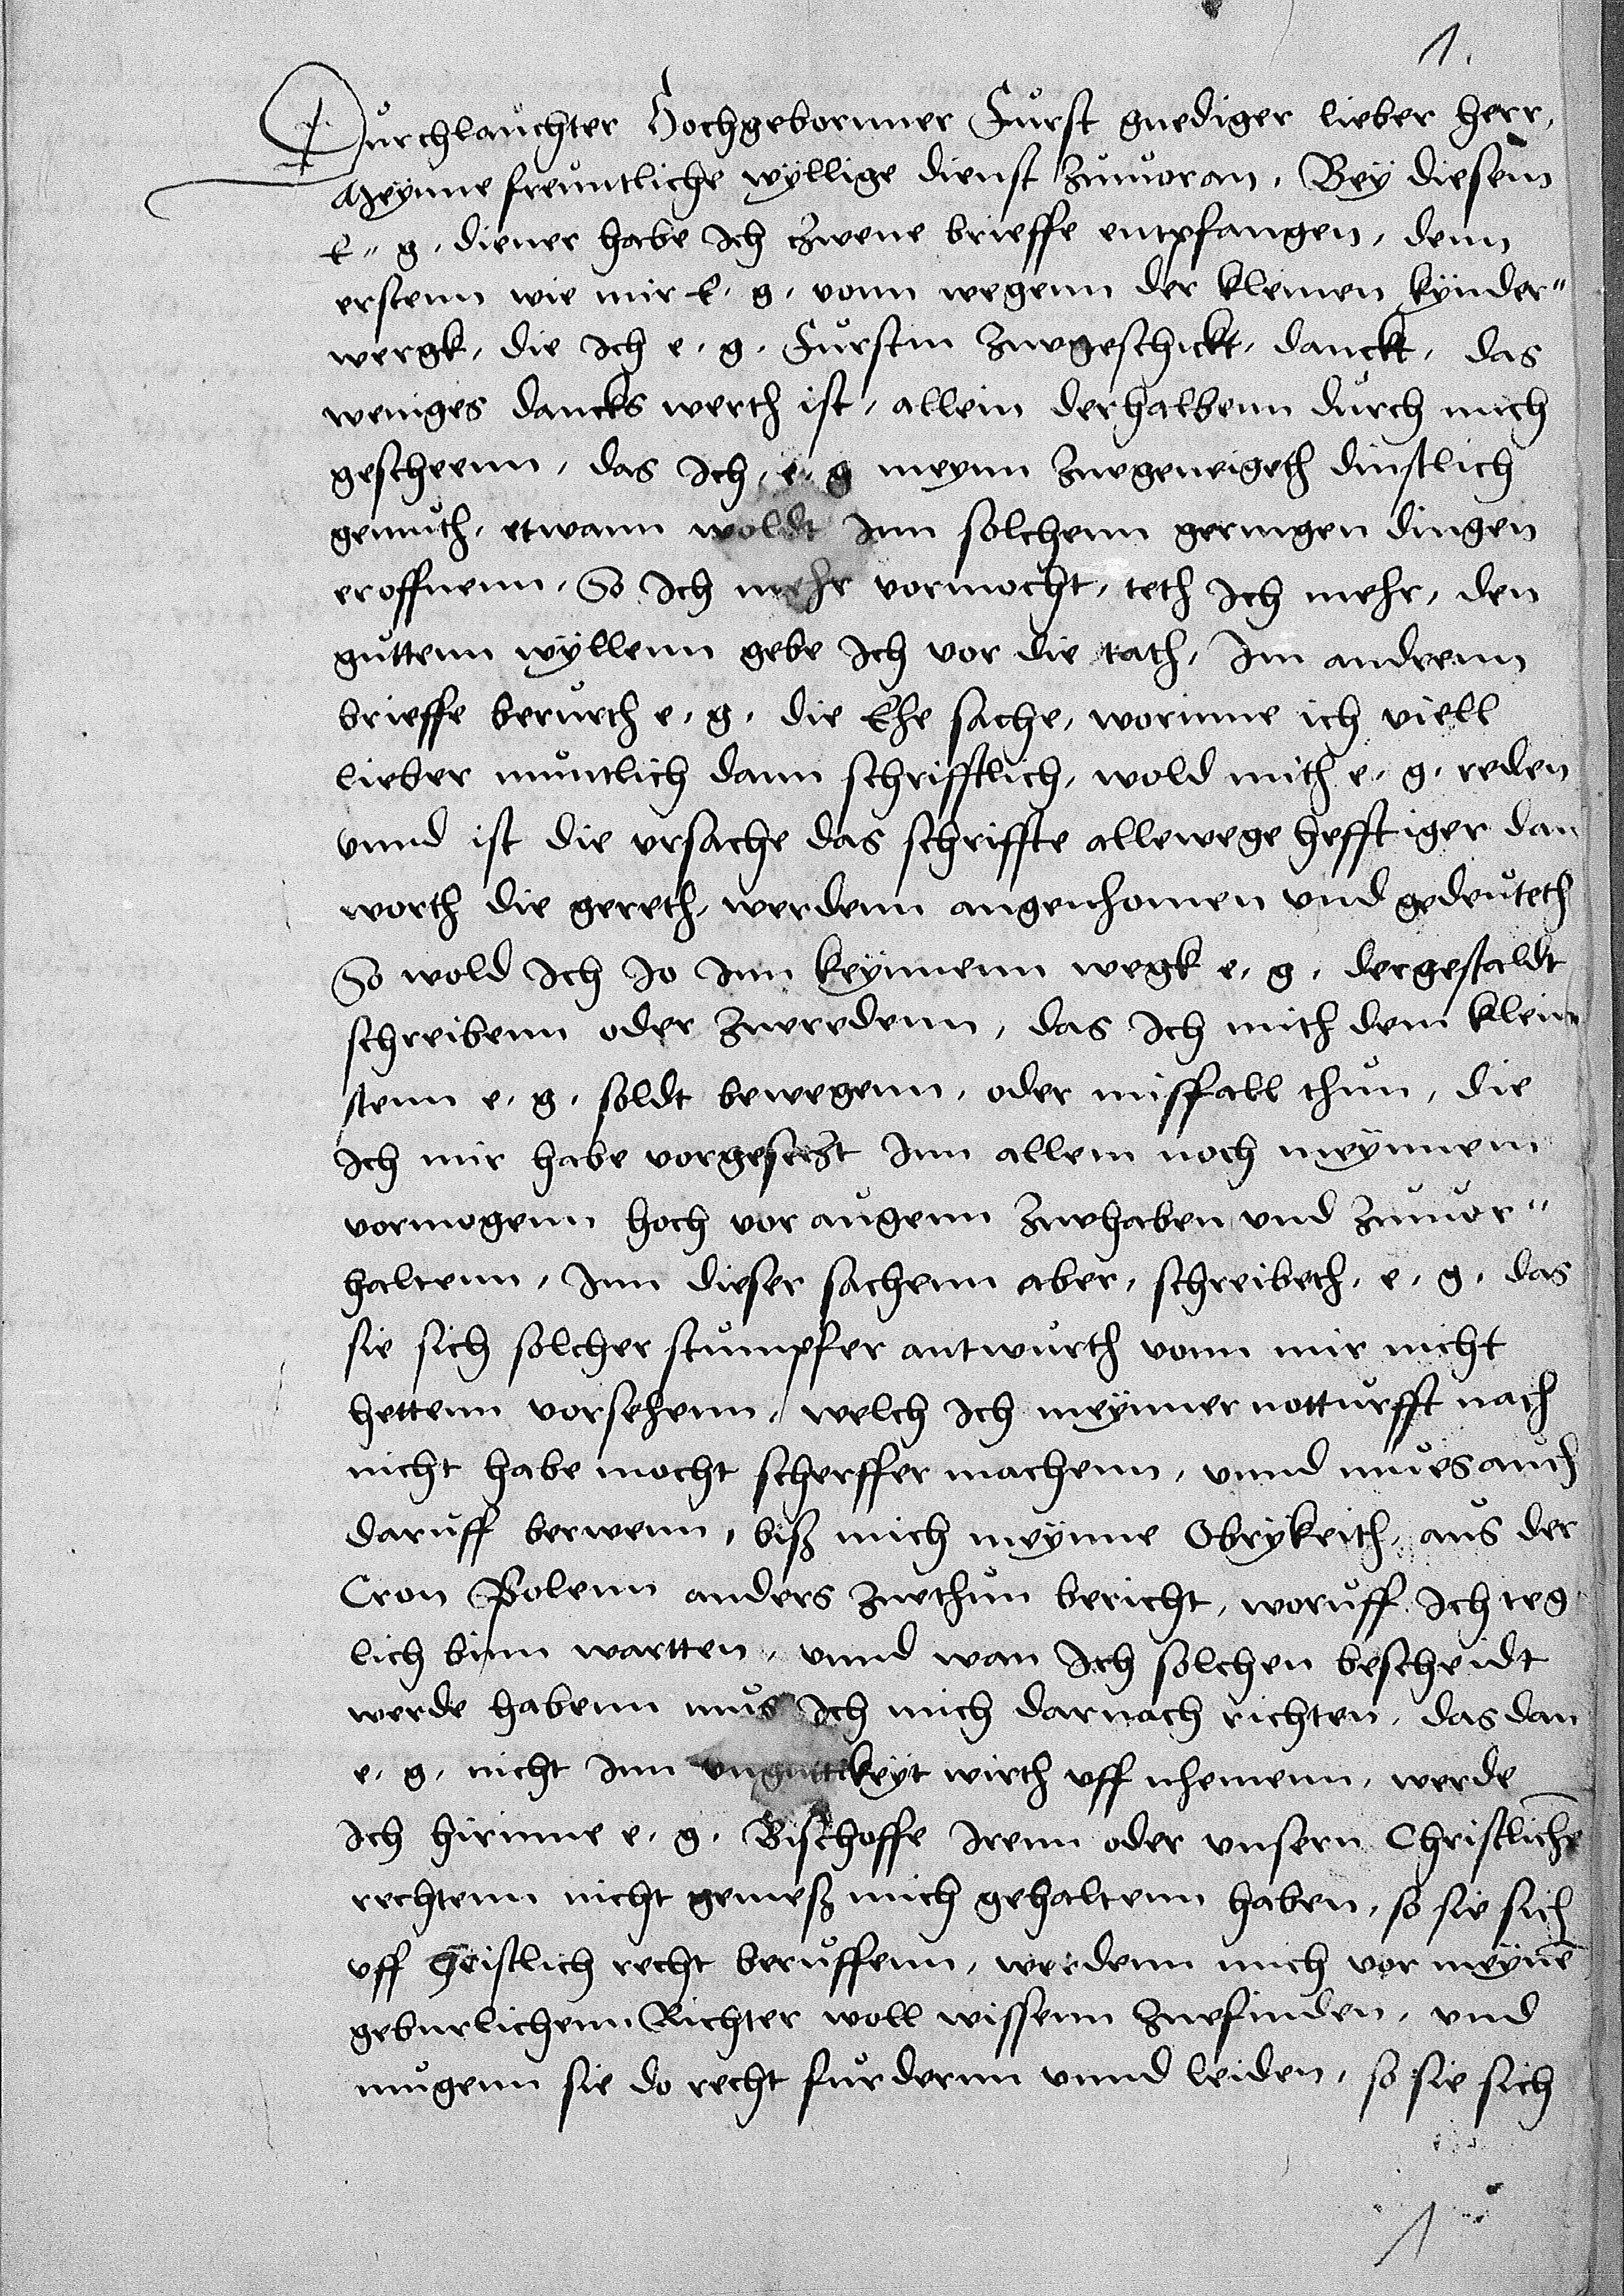 1.
Durchlauchter Hochgebornner Furst gnediger lieber herr,
Meynne freuntliche wyllige dienst zuuoran, Bey diesem
E. g. diener habe Ich czwene brieffe entpfangen, denn
erstenn wie mir E. g. vonn wegenn der kleinen kynder"
wergk, die Ich e. g. Furstin zwgeschickt, danckt, das
weniges dancks werth ist, allein derhalbenn durch mich
gescheenn, das Ich, e. g meynn zwgeneigeth dinstlich
gemuth, etwann woldt Inn solchenn geringen dingen
eroffnenn, So Ich mehr vormocht, teth Ich mehr, den
guttenn wyllenn gebe Ich vor die tath, Im andernn
brieffe berureth e. g. die Ehe sache, worinne ich viell
lieber muntlich dann schrifftlich, wold mith e. g. reden
vnnd ist die vrsache das schriffte allewege hefftiger dan
worth die gereth, werdenn angenhomen vnd gedeuteth
So wold Ich Jo Inn keynnenn wegk e. g. dergestaldt
schreibenn oder zweredenn, das Ich mith dem klein
stenn e. g. soldt bewegenn, oder missfall thun, die
Ich mir habe vorgesetzt Inn allem noch meynnem
vormogenn hoch vor augenn zwhaben vnd zuuor"
haltenn, Inn dieser sachenn aber, schreibeth, e. g. das
sie sich solcher stumpfer antwurth vonn mir nicht
hettenn vorsehenn, welch Ich meynner notturfft nach
nicht habe mocht scherffer machenn, vnnd mues auch
daruff berwenn, biß mich meynne Obrykeith, aus der
Cron Polenn anders zwthun bericht, woruff Ich teg
lich binn wartten, vnnd wan Ich solchen bescheidt
werde habenn mus Ich mich darnach richten, das dan
e. g. nicht Inn vnguttikeyt wirth vff nhemenn, werde
Ich hirinne e. g. Bischoffe Irenn oder vnsern Christliche
rechtenn nicht gemeß mich gehaltenn haben, so sie sich
vff Geistlich recht beruffenn, werdenn mich vor meyne
geburlichenn Richter woll wissenn zwfinden, vnd
mugenn sie do recht furdernn vnnd leiden, so sie sich
1